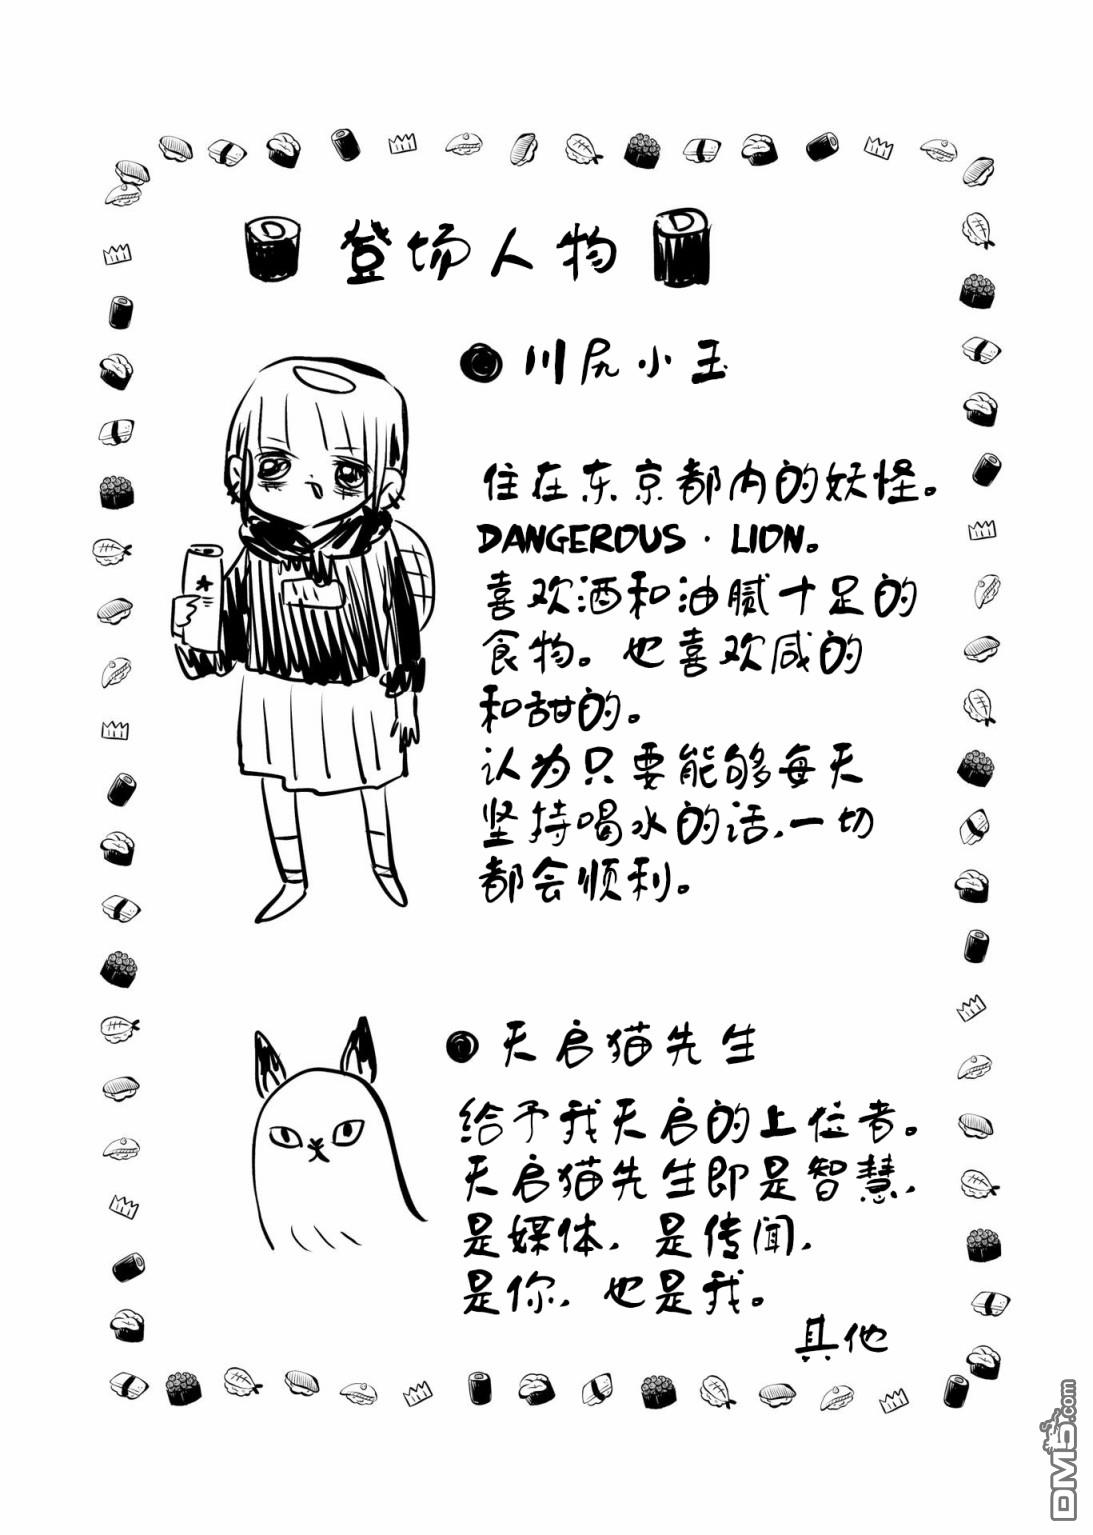 登场人物
川尻小玉
住在东京都内的妖怪。
DANGEROUS·LION。
喜欢酒和油腻十足的
食物。也喜欢咸的
和甜的。
认为只要能够每天
坚持喝水的话,一切
都会顺利。
天启猫先生
给予我天启的上位者。
天启猫先生即是智慧,
是媒体,是传闻,
是你,也是我。
其他
DM5.com